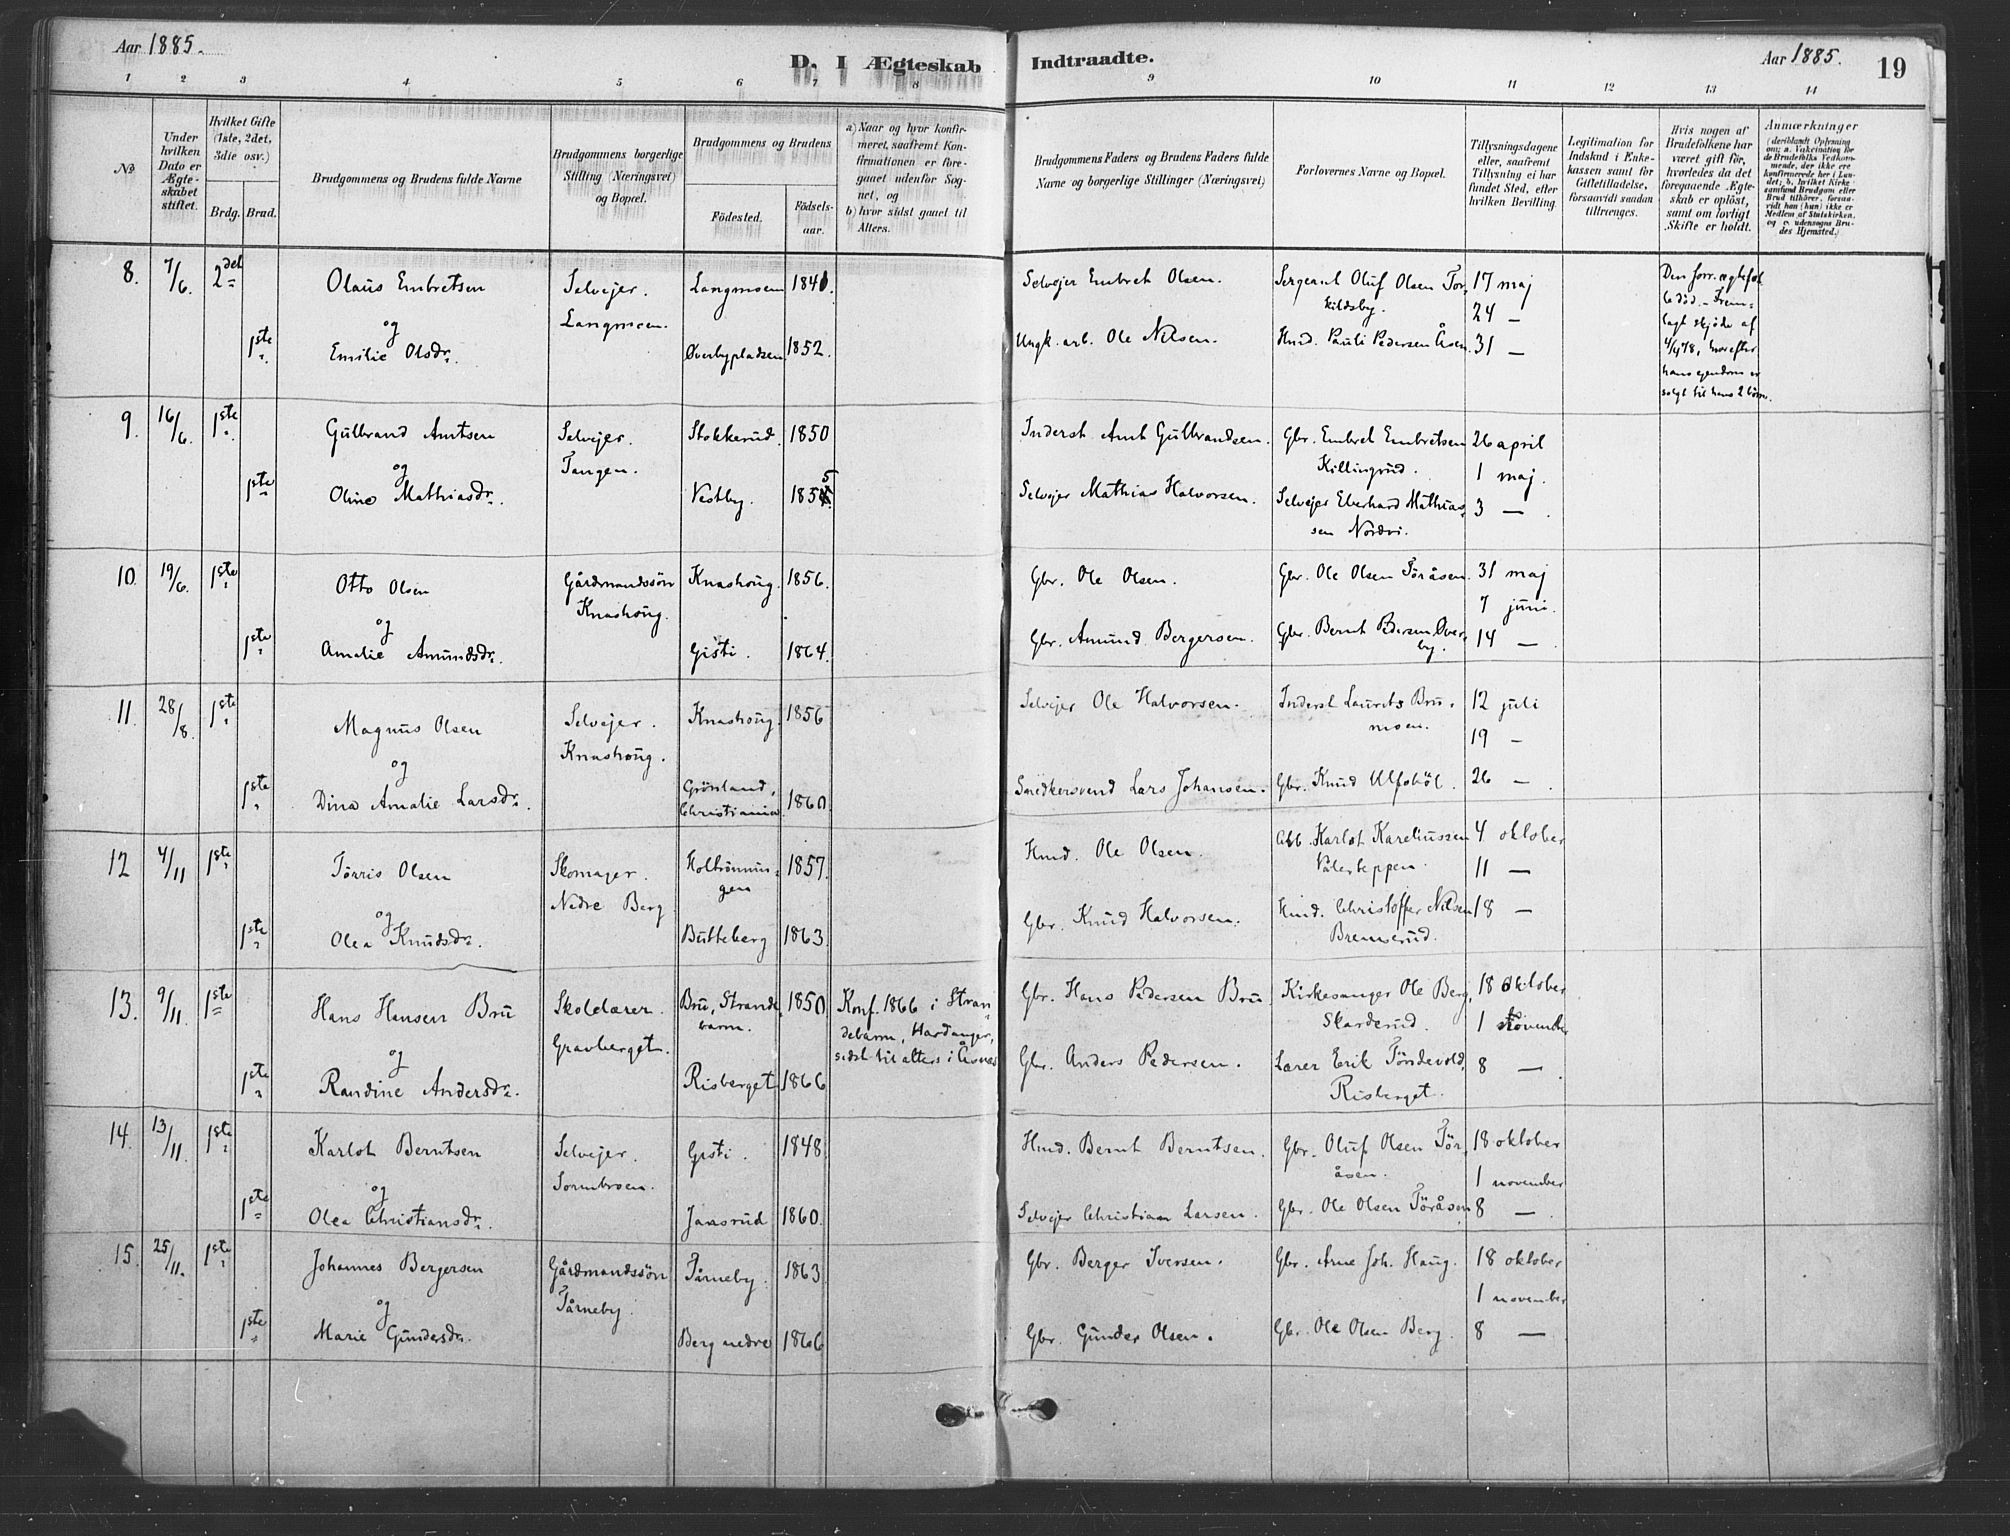 Aar 1885.
D. I Ægteskab Indtraadte.
Aar 1885.
19
1 2 3 4 5 6 7 8 9 10 11 12 13 14
No.
Under hvilken Dato er Ægteskabet stiftet.
Hvilket Gifte (1ste, 2det, 3die osv.)
Brdg. Brud.
Brudgommens og Brudens fulde Navne
Brudgommens borgerlige Stilling (Næringsvei) og Bopæl.
Brudgommens og Brudens
Fødested.
Fødselsaar.
a) Naar og hvor konfirmeret, saafremt Konfirmationen er foregaaet udenfor Sognet, og
b) hvor sidst gaaet til Alters.
Brudgommens Faders og Brudens Faders fulde Navne og borgerlige Stillinger (Næringsvei)
Forlovernes Navne og Bopæl.
Tillysningsdagene eller, saafremt Tillysning ei har fundet Sted, efter hvilken Bevilling.
Legitimation for Indskud i Enkekassen samt for Giftetilladelse, forsaavidt saadan tiltrænges.
Hvis nogen af Brudefolkene har været gift før, hvorledes da det foregaaende Ægteskab er opløst, samt om lovligt Skifte er holdt.
Anmærkninger
(deriblandt Oplysning om: a. Vakcination for de Brudefolks Vedkommende, der ikke ere konfirmerede her i Landet; b. hvilket Kirkesamfund Brudgom eller Brud tilhører, forsaavidt han (hun) ikke er Medlem af Statskirken, og c. udensogns Brudes Hjemsted.)
8. 7/6. 2det Olaus Embretsen Selvejer. Langmoen 1840. Selvejer Embret Olsen. Sergeant Oluf Olsen Torkildsby. 17 maj
og Langmoen. 24 —
1ste Emilie Olsdr. Øverbypladsen 1852. Ungk. arb. Ole Nilsen. Hmd. Pauli Pedersen Åsen. 31 —
Den forr. ægtefælle død. – Fremlagt skjøde af 4/4 78, hvorefter hans ejendom er solgt til hans 2 børn.
9. 16/6. 1ste Gulbrand Amtsen Selvejer. Stokkerud. 1850 Inderst Amt Gulbrandsen. Gbr. Embret Embretsen Killingrud. 26 april
og Tangen. 1 maj.
1ste Oline Mathiasdr. Vestby. 1855 Selvejer Mathias Halvorsen. Selvejer Eberhard Mathiassen Nordvi. 3 —
10. 19/6. 1ste Otto Olsen Gårdmandssön Knashoug. Knashoug. 1856. Gbr. Ole Olsen. Gbr. Ole Olsen Töråsen. 31 maj
og 7 juni.
1ste Amalie Amundsdr. Gisti. 1864. Gbr. Amund Bergersen. Gbr. Bernt Pedersen Överby. 14 —
11. 28/8. 1ste Magnus Olsen Selvejer. Knashoug. Knashoug. 1856 Selvejer Ole Halvorsen. Inderst Laurits Brumoen. 12 juli
og 19 —
1ste Dina Amalie Larsdr. Grönland, Christiania. 1860. Snedkersvend Lars Johansen. Gbr. Knud Ulfsböl. 26 —
12 4/11 1ste Törris Olsen Skomager. Nedre Berg 1857. Hmd. Ole Olsen. Karlot Kareliussen 4 oktober
11 —
og
1ste Olea Knudsdr. Butteberg 1863. Gbr. Knud Halvorsen. Hmd. Christoffer Nilsen Bremserud. 18 —
13. 9/11. 1ste Hans Hansen Bru Skolelærer. Gravberget. Bru, Strandebarm. 1850 Konf. 1866 i Strandebarm, Hardanger, sidst til alters i Åsnes Gbr. Hans Pedersen Bru Kirkesanger Ole Berg, Skarderud. 18 oktober
og 1 november
1ste Randine Andersdr. Risberget 1866 Gbr. Anders Pedersen. Lærer Erik Tördevold, Risberget. 8 —
14. 13/11. 1ste Karlot Berntsen Selvejer. Sormbroen. Gisti. 1848 Hmd. Bernt Berntsen. Gbr. Oluf Olsen Töråsen. 18 oktober
og 1 november
1ste Olea Christiansdr. Jansrud 1860. Selvejer Christian Larsen. Gbr. Ole Olsen Töråsen 8 —
15. 25/11. 1ste Johannes Bergersen Gårdmandssön Tårneby. Tårneby. 1863 Gbr. Berger Iversen. Gbr. Arne Joh. Haug. 18 oktober
og 1 november
1ste Marie Gundersdr. Berg nedre 1866 Gbr. Gunder Olsen. Gbr. Ole Olsen Berg. 8 —